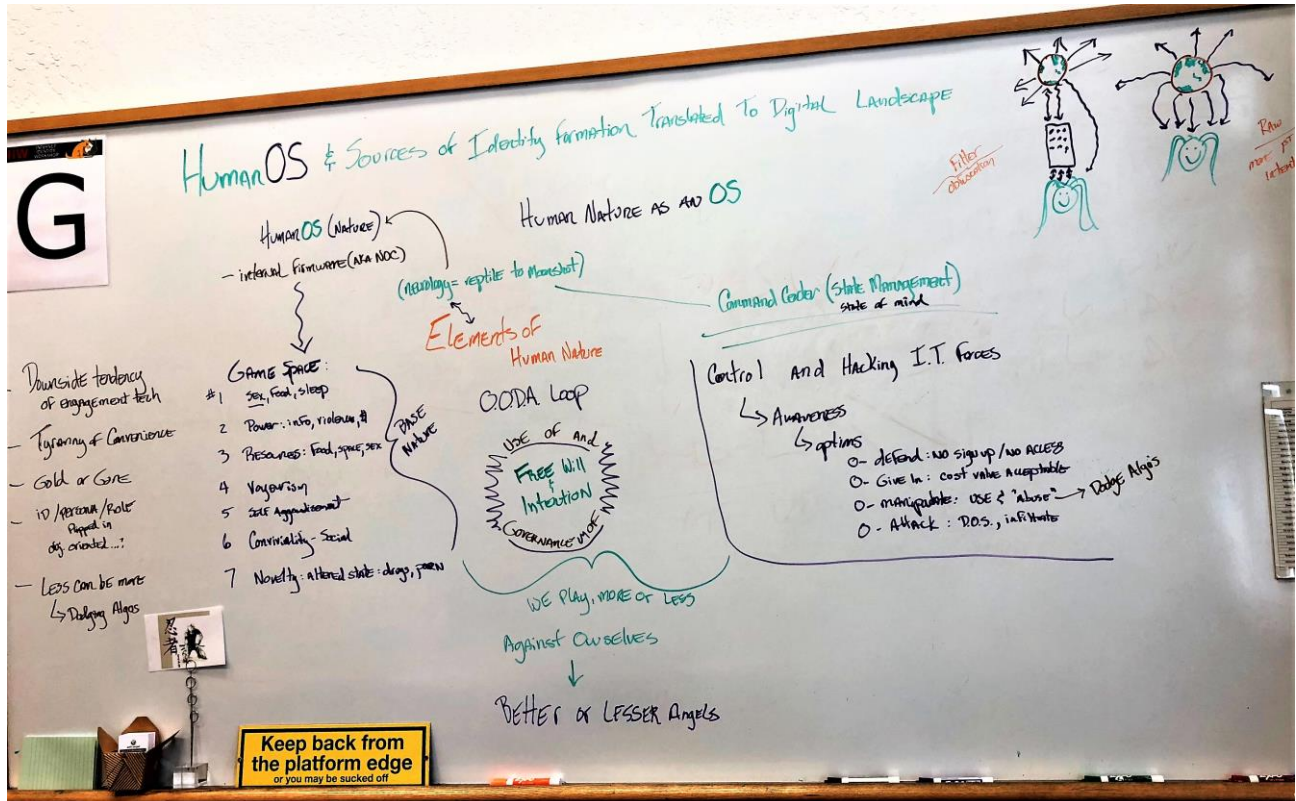 G
HumanOS & Sources of Identity Formation Translated To Digital Landscape
Human Nature as an OS
HumanOS (Nature)
- internal firmware (AKA NOC)
(neurology = reptile to moonshot)
Elements of
Human Nature
Filter
obfuscation
Raw
Command Center (State Management)
state of mind
- Downside tendency
of engagement tech
- Tyranny of Convenience
- Gold or Gore
- iD/persona/Role
- Less can be more
↳ Dodging Algos
Game Space:
#1 Sex, Food, sleep
2 Power: info, violence, $
3 Resources: Food, space, sex
4 Voyeurism
5 Self Aggrandisement
6 Conviviality - Social
7 Novelty: altered state: drugs, porn
Base
Nature
O.O.D.A. Loop
Use of and
Free Will
&
Intention
Governance
We play, more or less
Against Ourselves
Better or Lesser Angels
Control and Hacking I.T. Forces
↳ Awareness
↳ options
O- defend: No sign up/No ACCESS
O- Give In: cost value Acceptable
O- manipulate: USE & "abuse" → Dodge Algos
O- Attack: D.O.S., infiltrate
忍者
Keep back from
the platform edge
or you may be sucked off